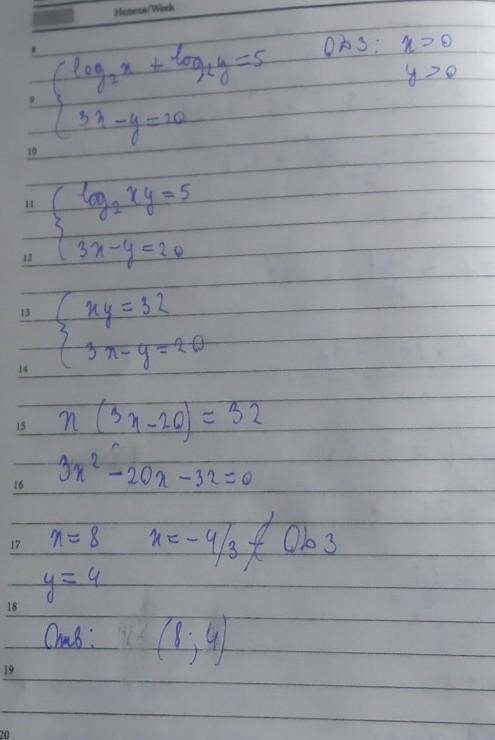 Неделя/Week
8
{ log₂x + log₂y = 5 ОДЗ: x>0
9 y>0
3x - y = 20
10
11 { log₂xy = 5
12 3x - y = 20
13 { xy = 32
3x - y = 20
14
15 x (3x - 20) = 32
3x² - 20x - 32 = 0
16
17 x = 8 x = -4/3 ∉ ОДЗ
y = 4
18
Отв: (8; 4)
19
20